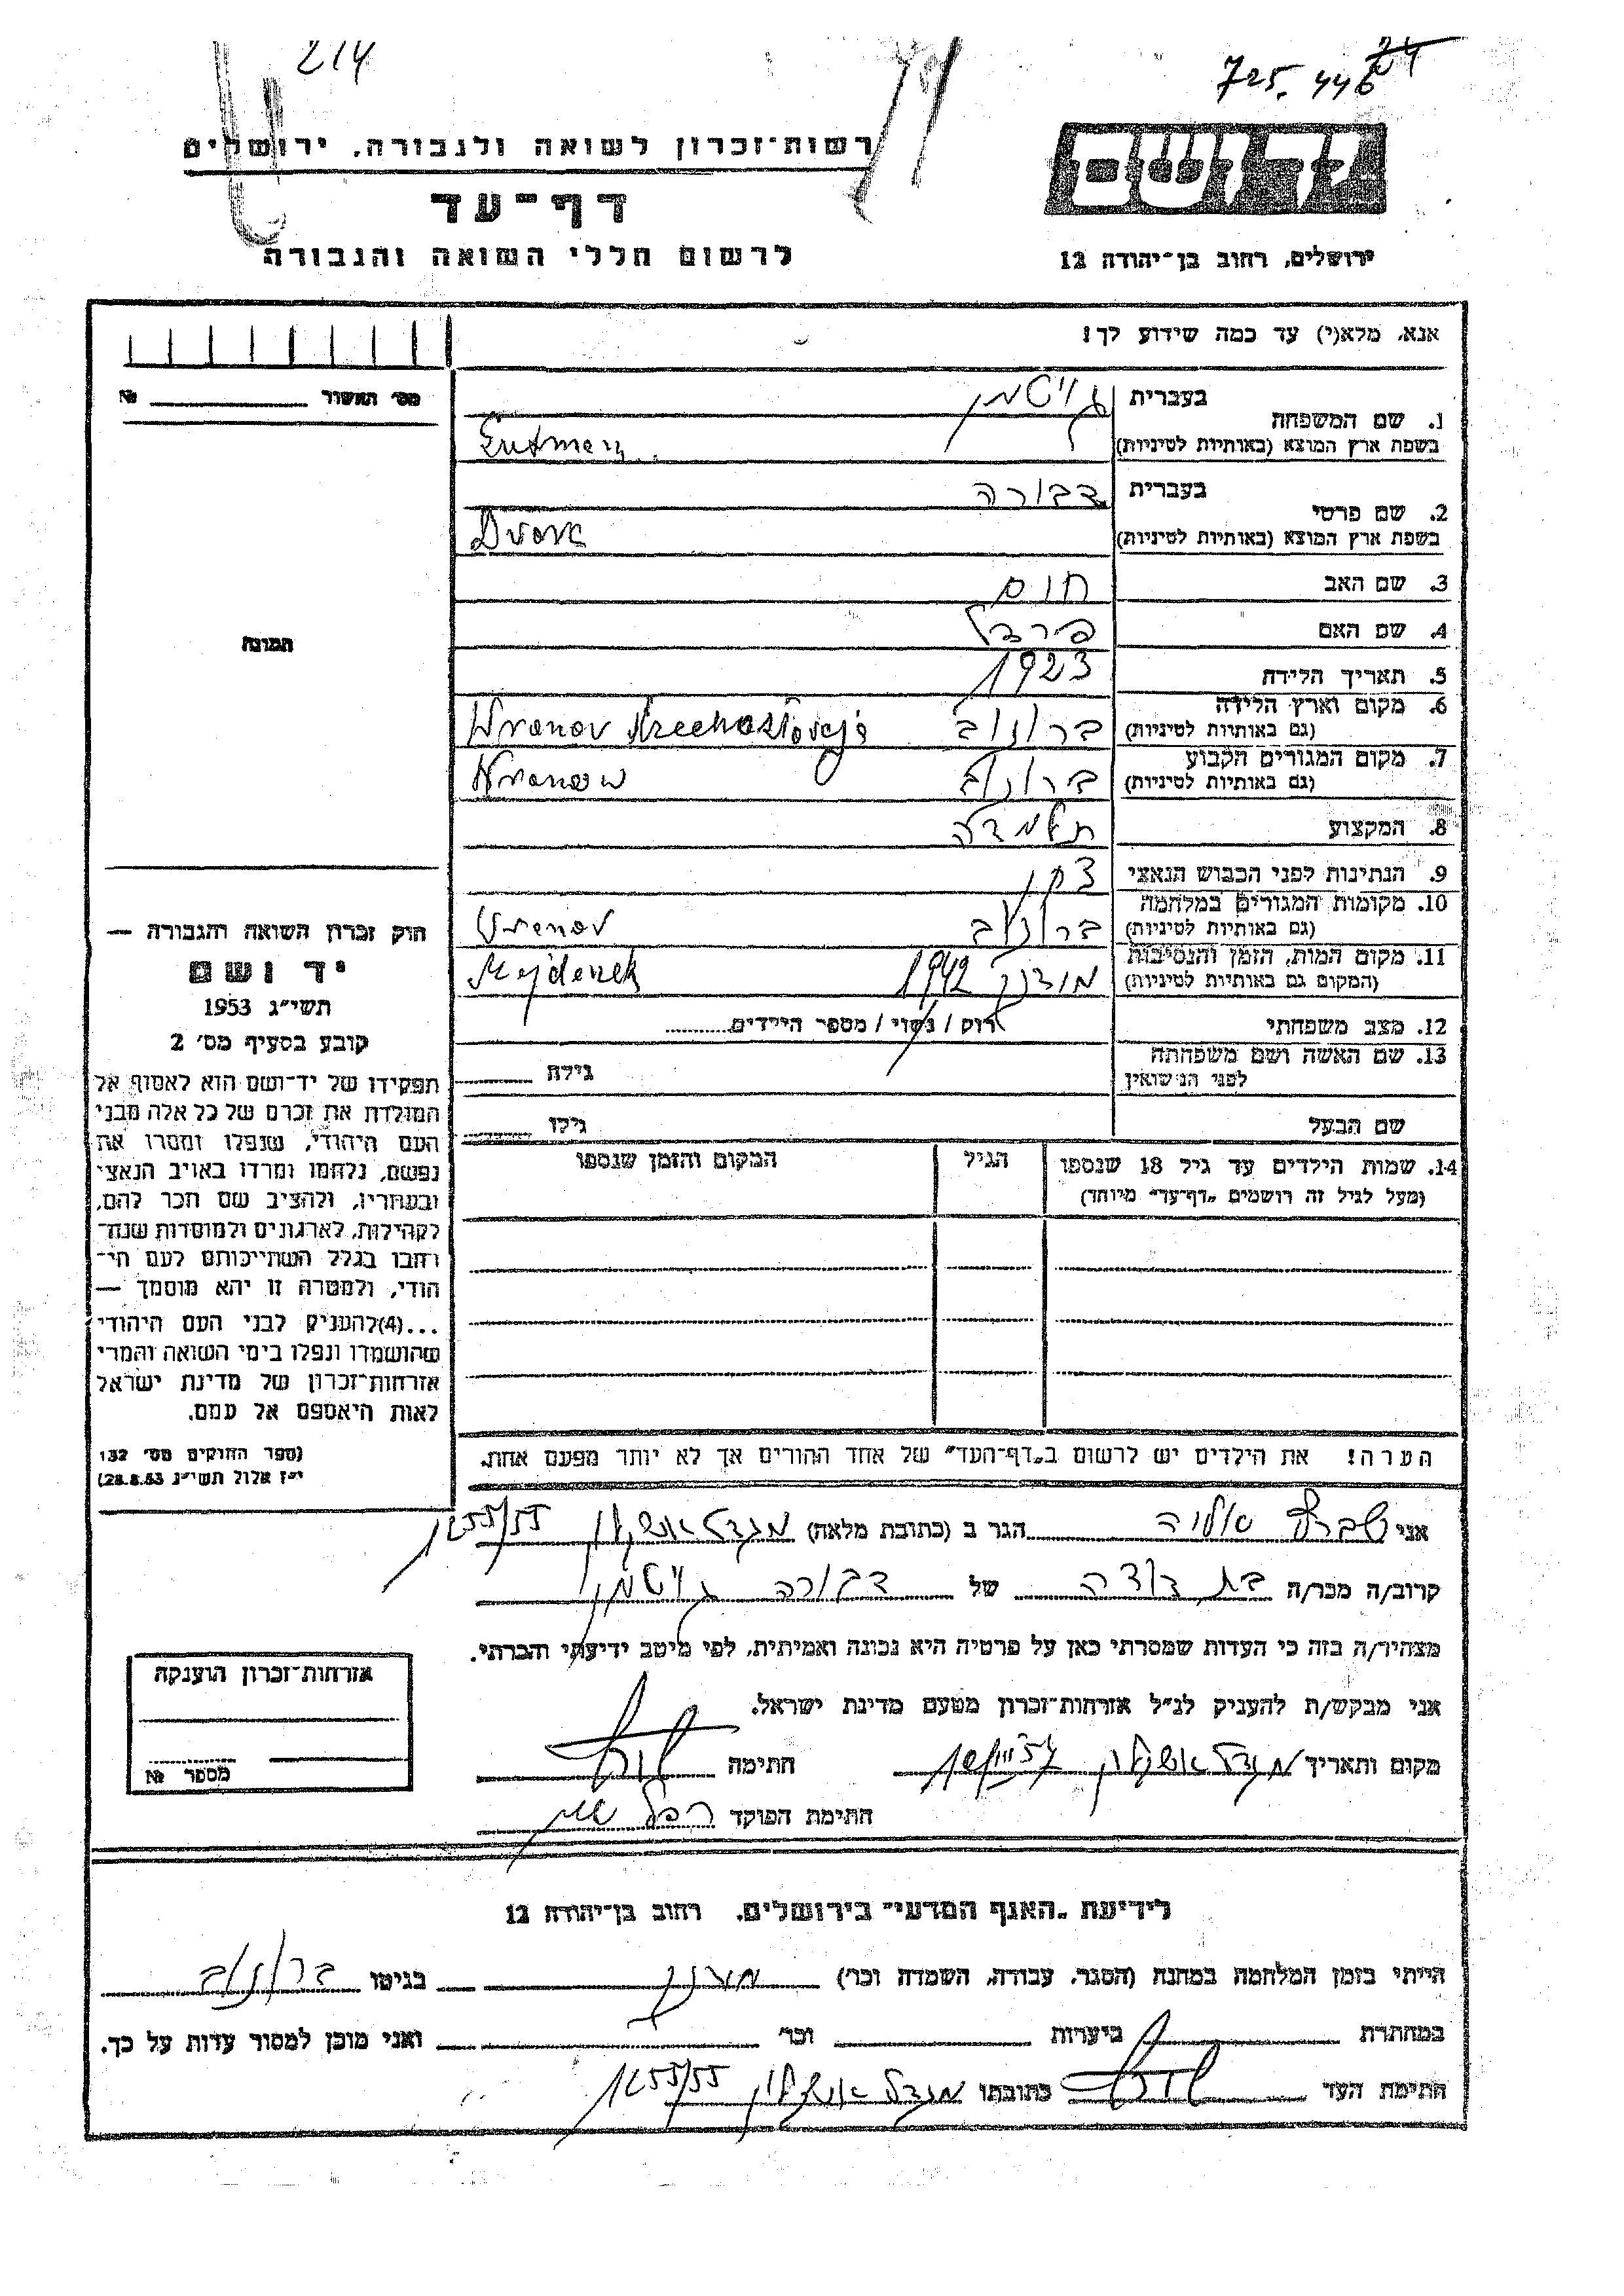 214
725.446
24
רשות־זכרון לשואה ולגבורה, ירושלים
דף־עד
לרשום חללי השואה והגבורה
יד ושם
ירושלים, רחוב בן־יהודה 12
אנא, מלא(י) עד כמה שידוע לך!
מס' האשור № 
1. שם המשפחה בעברית גויטמן
בשפת ארץ המוצא (באותיות לטיניות)
2. שם פרטי בעברית דבורה
בשפת ארץ המוצא (באותיות לטיניות) Dvora
3. שם האב חיים
4. שם האם פרדל
5. תאריך הלידה 1923
6. מקום וארץ הלידה (גם באותיות לטיניות) ברונוב Wranov
7. מקום המגורים הקבוע (גם באותיות לטיניות) ברונוב Wranow
8. המקצוע תלמדה
9. הנתינות לפני הכבוש הנאצי
10. מקומות המגורים במלחמה (גם באותיות לטיניות) ברונוב Vrenov
11. מקום המות, הזמן והנסיבות (המקום גם באותיות לטיניות) מידנק 1942 Majdenek
12. מצב משפחתי רוק / נשוי / מספר הילדים
13. שם האשה ושם משפחתה לפני הנישואין גילה
שם הבעל גילו
14. שמות הילדים עד גיל 18 שנספו הגיל המקום והזמן שנספו
(מעל לגיל זה רושמים „דף־עד" מיוחד)
הערה! את הילדים יש לרשום ב„דף־העד" של אחד ההורים אך לא יותר מפעם אחת.
תמונה
חוק זכרון השואה והגבורה —
יד ושם
תשי"ג 1953
קובע בסעיף מס' 2
תפקידו של יד־ושם הוא לאסוף אל
המולדת את זכרם של כל אלה מבני
העם היהודי, שנפלו ומסרו את
נפשם, נלחמו ומרדו באויב הנאצי
ובעוזריו, ולהציב שם וזכר להם,
לקהילות, לארגונים ולמוסדות שנח־
רבו בגלל השתייכותם לעם הי־
הודי, ולמטרה זו יהא מוסמך —
...(4) להעניק לבני העם היהודי
שהושמדו ונפלו בימי השואה והמרי
אזרחות־זכרון של מדינת ישראל
לאות היאספם אל עמם.
(ספר החוקים מס' 132
י"ז אלול תשי"ג 28.8.53)
אני הגר ב (כתובת מלאה) מגדל אשקלון 1255/55
קרוב/ה מכר/ה בת דודה של דבורה גויטמן
מצהיר/ה בזה כי העדות שמסרתי כאן על פרטיה היא נכונה ואמיתית, לפי מיטב ידיעתי והכרתי.
אני מבקש/ת להעניק לנ"ל אזרחות־זכרון מטעם מדינת ישראל.
מקום ותאריך מגדל אשקלון חתימה
חתימת הפוקד
אזרחות־זכרון הוענקה
מספר №
לידיעת „האגף המדעי" בירושלים, רחוב בן־יהודה 12
הייתי בזמן המלחמה במחנה (הסגר, עבודה, השמדה וכו') מידנק בגיטו ברונוב
במחתרת ביערות וכו' ואני מוכן למסור עדות על כך.
חתימת העד כתובתו מגדל אשקלון 1255/55